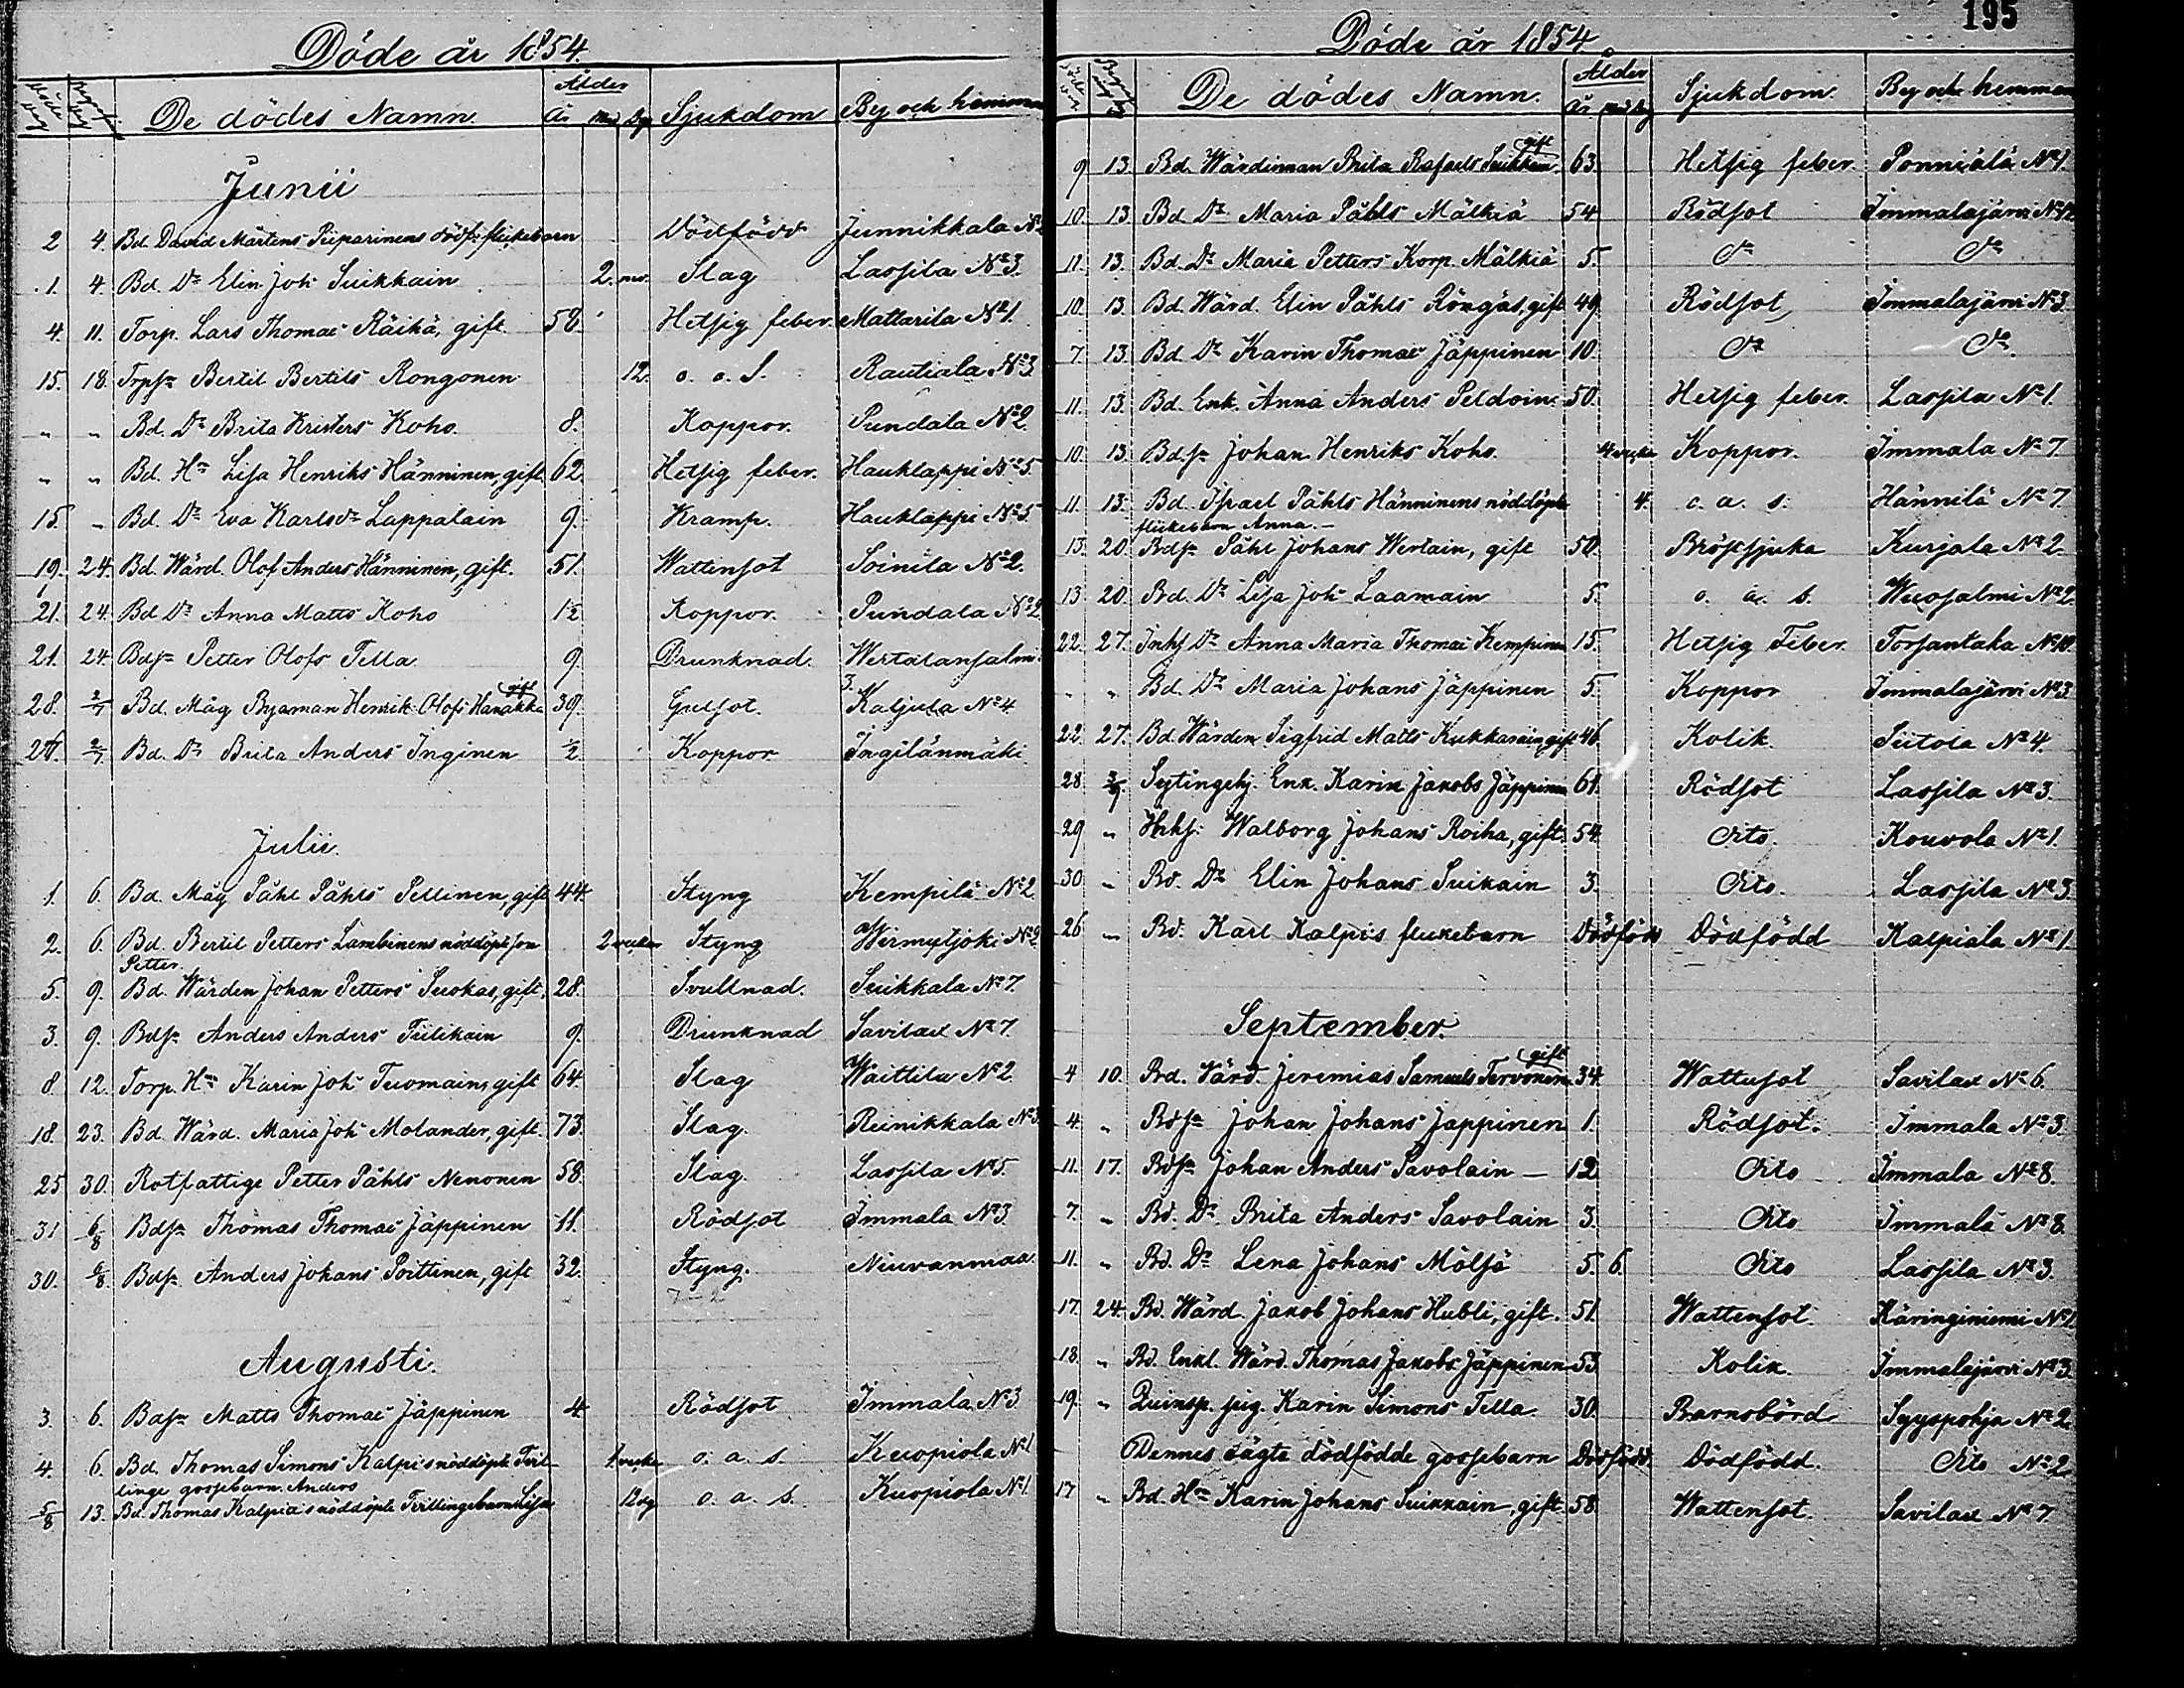 Döde år 1854.
Döde dag Begrof. dag De dödes Namn. Ålder År Mn. Dg. Sjukdom By och hemman
Junii
2 4. Bd. David Mårtens Piiparinens dödf. flickebarn Dödfödd Junnikkala №
1. 4. Bd. Dr Elin Joh: Suikkain 2. mo. Slag Lassila № 3.
4. 11. Torp. Lars Thomae Räikä, gift. 58 Hetsig feber. Mattarila № 1.
15. 18. Trpsn Bertil Bertils Rongonen 12. o. a. s. Rautiala № 3
" " Bd. Dr Brita Kristers Koho. 8. Koppor. Pundala № 2
" " Bd. Hu Lisa Henriks Hänninen, gift. 62. Hetsig feber. Hauklappi № 5.
15 " Bd. Dr Eva Karlsdr Lappalain 9. Kramp. Hauklappi № 5.
19. 24. Bd. Wärd. Olof Anders Hänninen, gift. 51. Wattensot Soinila № 2.
21. 24. Bd Dr Anna Matts Koho 1½ Koppor. Pundala № 2
21. 24 Bdsn Petter Olofs Tella 9. Drunknad. Wertalansalmi.
28. 2/7 Bd. Måg Byaman Henrik Olofs Hanakka gift 39. Gulsot. 3. Kaljula № 4.
28. 2/7 Bd. Dr Brita Anders Inginen ½ Koppor Ingilänmäki
Julii.
1. 6. Bd. Måg Påhl Påhls Pellinen, gift 44. Styng Kempilä № 2
2. 6. Bd. Bertil Petters Lambinens nöddöpte son 2 veckor Styng Wirmutjoki № 2
Petter.
5. 9. Bd. Wärden Johan Petters Suokas, gift. 28. Svullnad. Suikkala № 7.
3. 9. Bdsn Anders Anders Tiilikain 9. Drunknad Savilax № 7.
8 12. Torp. Hu Karin Joh: Tuomain, gift 64. Slag Waittila № 2
18. 23. Bd. Wärd. Maria Joh: Molander, gift. 73. Slag. Reinikkala № 3
25 30. Rotfattige Petter Påhls Nenonen 58. Slag. Lassila № 5.
31 6/8 Bdsn Thomas Thomae Jäppinen 11. Rödsot Immala № 3
30. 6/8. Bdsn Anders Johans Poittinen, gift 32. Styng. Niuvanmaa
7-2
Augusti.
3. 6. Bdsn Matts Thomae Jäppinen 4. Rödsot Immala № 3
4. 6. Bd. Thomas Simons Kalpis nöddöpte Tvil- 1. vecka o. a. s. Kuopiola № 1
linge gossebarn Anders
5/8 13. Bd. Thomas Kalpia's nöddöpte Tvillingebarn Lisa 12 dg o. a. s. Kuopiola № 1.
195
Döde år 1854.
Döde dag Begrof. dag De dödes Namn. Ålder År Mn Dg Sjukdom. By och hemman
9 13. Bd. Wärdinnan Brita Rafaels Suikkain. gift 63. Hetsig feber. Ponniälä № 1.
10. 13. Bd. Dr Maria Påhls Mälkiä 54 Rödsot Immalajärvi № 12
11. 13. Bd. Dr Maria Petters Korp. Mälkiä 5. Do Do
10. 13. Bd. Wärd. Elin Påhls Röngäs, gift 49. Rödsot, Immalajärvi № 3
7. 13. Bd. Dr Karin Thomae Jäppinen 10. Do Do.
11. 13. Bd. Enk. Anna Anders Peldoin. 50. Hetsig feber. Lassila № 1.
10. 13. Bdsn Johan Henriks Koho. 4 veckor Koppor. Immala № 7.
11. 13. Bd. Israel Påhls Hänninens nöddöpte 4. o. a. s. Hännilä № 7.
flickebarn Anna.-
13. 20. Bdsn Påhl Johans Wertain, gift 50. Bröstsjuka Kurjala № 2.
13 20. Bd. Dr Lisa Joh: Laamain 5. o. a. s. Wuosalmi № 2.
22. 27. Inhs Dr Anna Maria Thomae Kempinen 15. Hetsig Feber. Torsantaka № 10.
" " Bd. Dr Maria Johans Jäppinen 5. Koppor Immalajärvi № 3
22. 27. Bd. Wärden Sigfrid Matts Kukkarain, gift 46 Kolik. Siitola № 4.
28 3/9. Sytingehj. Enk. Karin Jakobs Jäppinen 61. Rödsot Lassila № 3.
29 " Inhs: Walborg Johans Roiha, gift. 54. Dito. Kouvola № 1.
30 " Bd. Dr Elin Johans Suikain 3. Dito. Lassila № 3.
26 " Bd. Karl Kalpis flickebarn Dödfödd Dödfödd Kalpiala № 1.
September.
4 10. Bd. Värd. Jeremias Samuels Tervonen gift 34. Wattusot Savilax № 6.
4. " Bdsn Johan Johans Jäppinen 1. Rödsot. Immala № 3.
11. 17. Bdsn Johan Anders Savolain - 12 Dito Immala № 8.
7. " Bd. Dr Brita Anders Savolain 3. Dito Immala № 8.
11. " Bd. Dr Lena Johans Mölsä 5. 6. Dito Lassila № 3.
17. 24. Bd. Wärd. Jakob Johans Hubli, gift. 51. Wattensot. Käringiniemi № 1
18. " Bd. Enkl. Wärd. Thomas Jakobs Jäppinen 53. Kolik. Immalajärvi № 3.
19. " Quinsp. pig. Karin Simons Tella. 30. Barnsbörd Syyspohja № 2.
Dennes oägta dödfödde gossebarn Dödfödd. Dödfödd. Dito № 2
17 " Bd. Hu Karin Johans Suikkain, gift. 58. Wattensot. Savilax № 7.